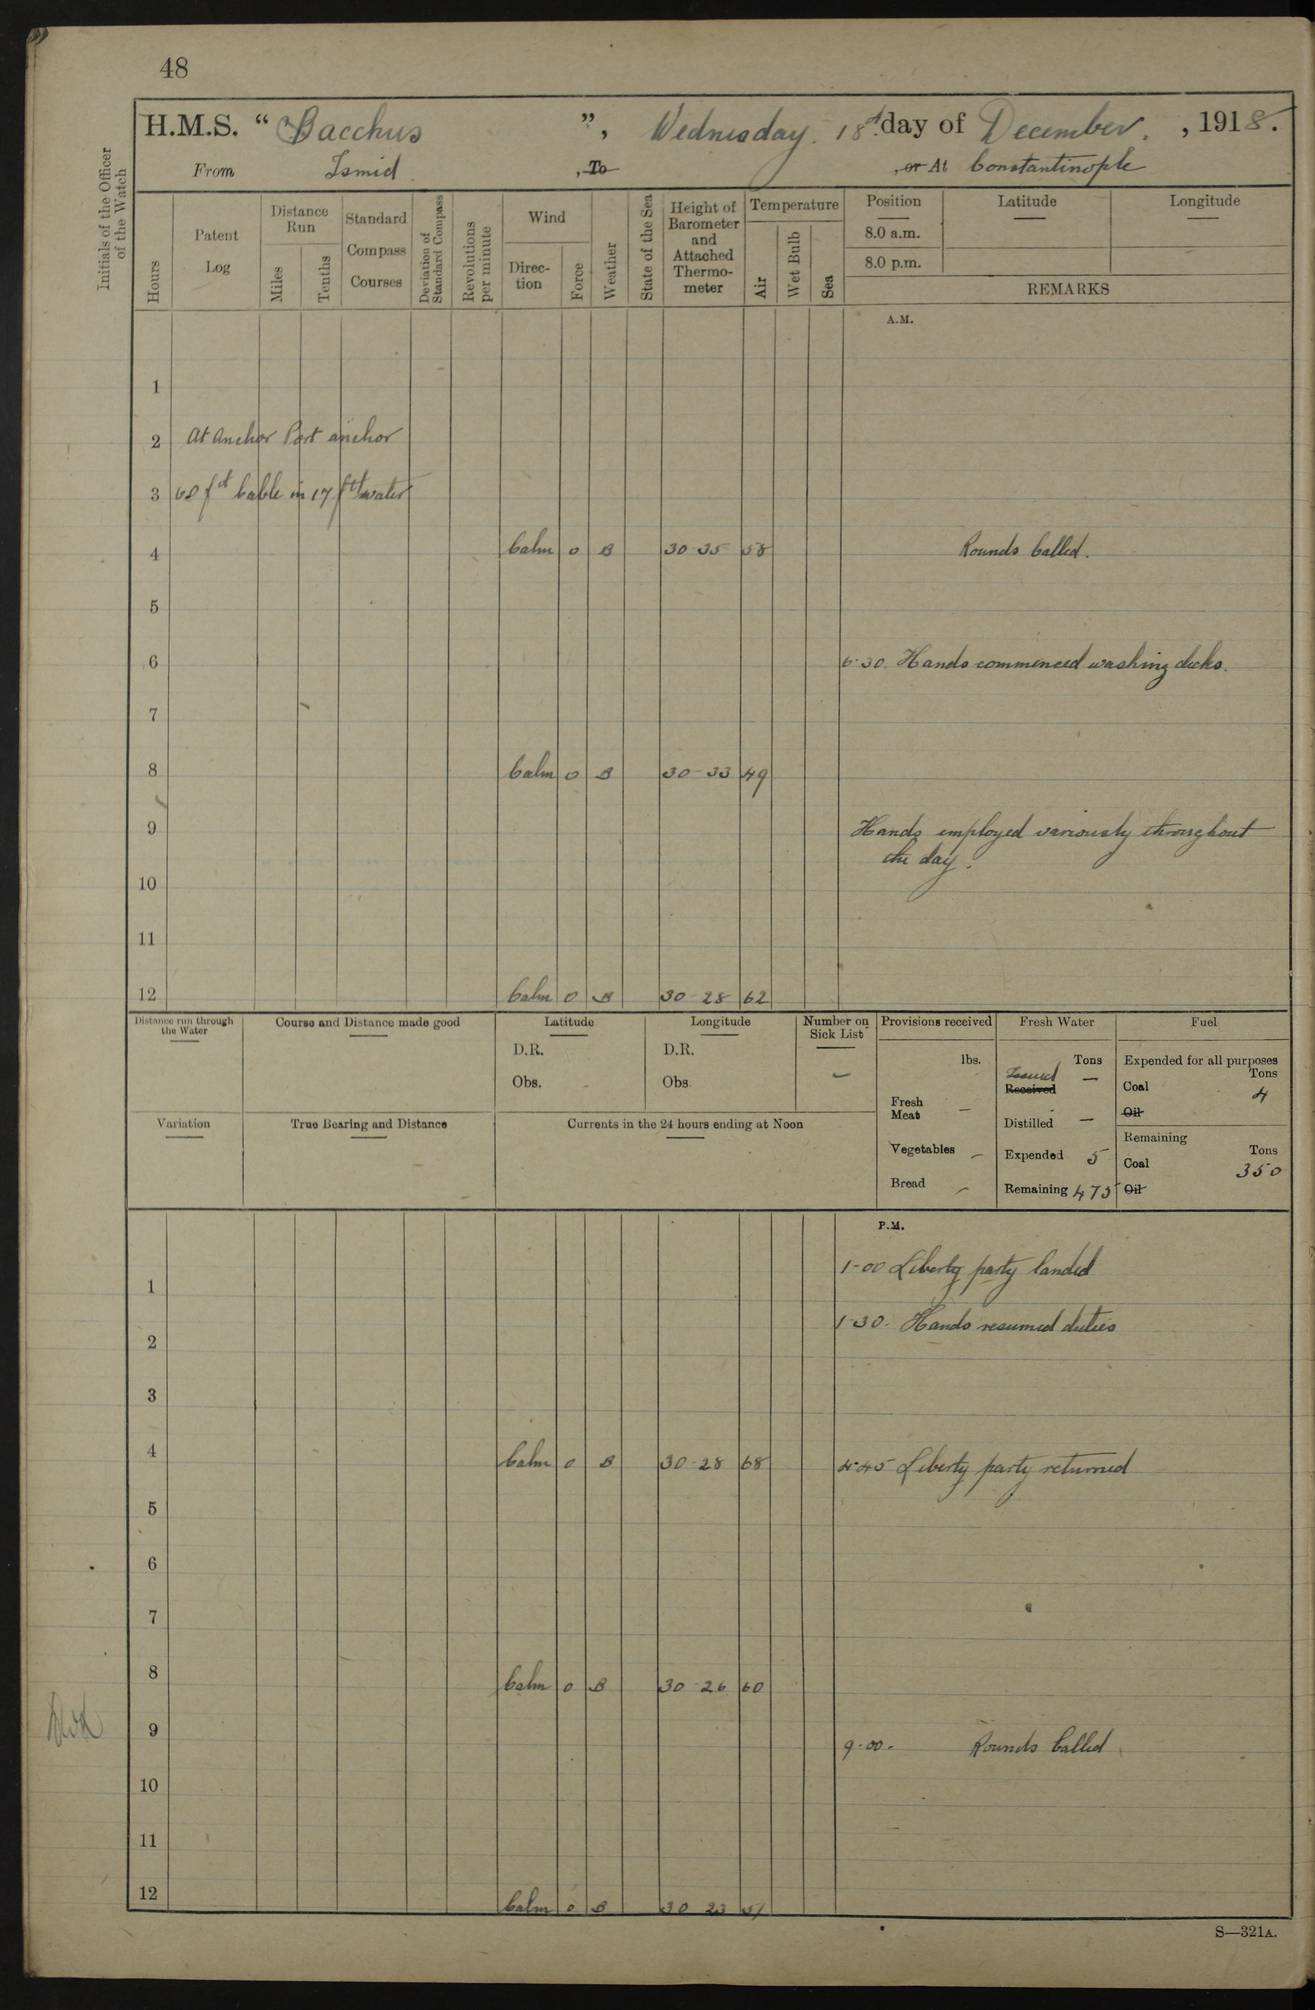 48
H.M.S. “ Bacchus ”, Wednesday. 18th day of December. , 1918.
From Ismid , To , or At Constantinople
Initials of the Officer of the Watch
Hours
Patent Log
Distance Run
Miles
Tenths
Standard Compass Courses
Deviation of Standard Compass
Revolutions per minute
Wind
Direction
Force
Weather
State of the Sea
Height of Barometer and Attached Thermometer
Temperature
Air
Wet Bulb
Sea
Position
8.0 a.m.
8.0 p.m.
Latitude
Longitude
REMARKS
A.M.
1
2 At Anchor Port anchor
3 Cable in 17 water
4 Calm 0 B 30-35 58 Rounds Called.
5
6 6-30. Hands commenced washing decks.
7
8 Calm 0 B 30-33 49
9 Hands employed variously throughout
the day.
10
11
12 Calm 0 B 30-28 62
Distance run through the Water
Course and Distance made good
Latitude
D.R.
Obs.
Longitude
D.R.
Obs
Number on Sick List
—
Provisions received
lbs.
Fresh Meat —
Vegetables —
Bread —
Fresh Water
Tons
Issued —
Received
Distilled —
Expended 5
Remaining 475
Fuel
Expended for all purposes
Tons
Coal 4
Oil
Remaining
Tons
Coal 350
Oil
Variation
True Bearing and Distance
Currents in the 24 hours ending at Noon
P.M.
1-00 Liberty party landed
1
1-30. Hands resumed duties
2
3
4 Calm 0 B 30-28 68 4-45 Liberty party returned
5
6
7
8 Calm 0 B 30-26 60
9 9-00. Rounds Called
10
11
12 Calm 0 B 30 23 51
S—321A.